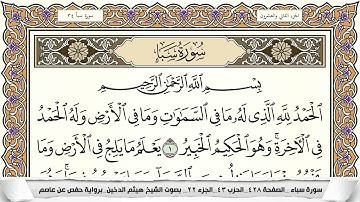 الجزء الثاني والعشرون
سورة سبأ ٣٤
سُورَةُ سَبَإٍ
بِسْمِ اللَّهِ الرَّحْمَٰنِ الرَّحِيمِ
الْحَمْدُ لِلَّهِ الَّذِي لَهُ مَا فِي السَّمَٰوَٰتِ وَمَا فِي الْأَرْضِ وَلَهُ الْحَمْدُ
فِي الْآخِرَةِ وَهُوَ الْحَكِيمُ الْخَبِيرُ ١ يَعْلَمُ مَا يَلِجُ فِي الْأَرْضِ وَمَا
سورة سباء _الصفحة ٤٢٨_الحزب ٤٣_الجزء ٢٢_ بصوت الشيخ هيثم الدخين_ برواية حفص عن عاصم